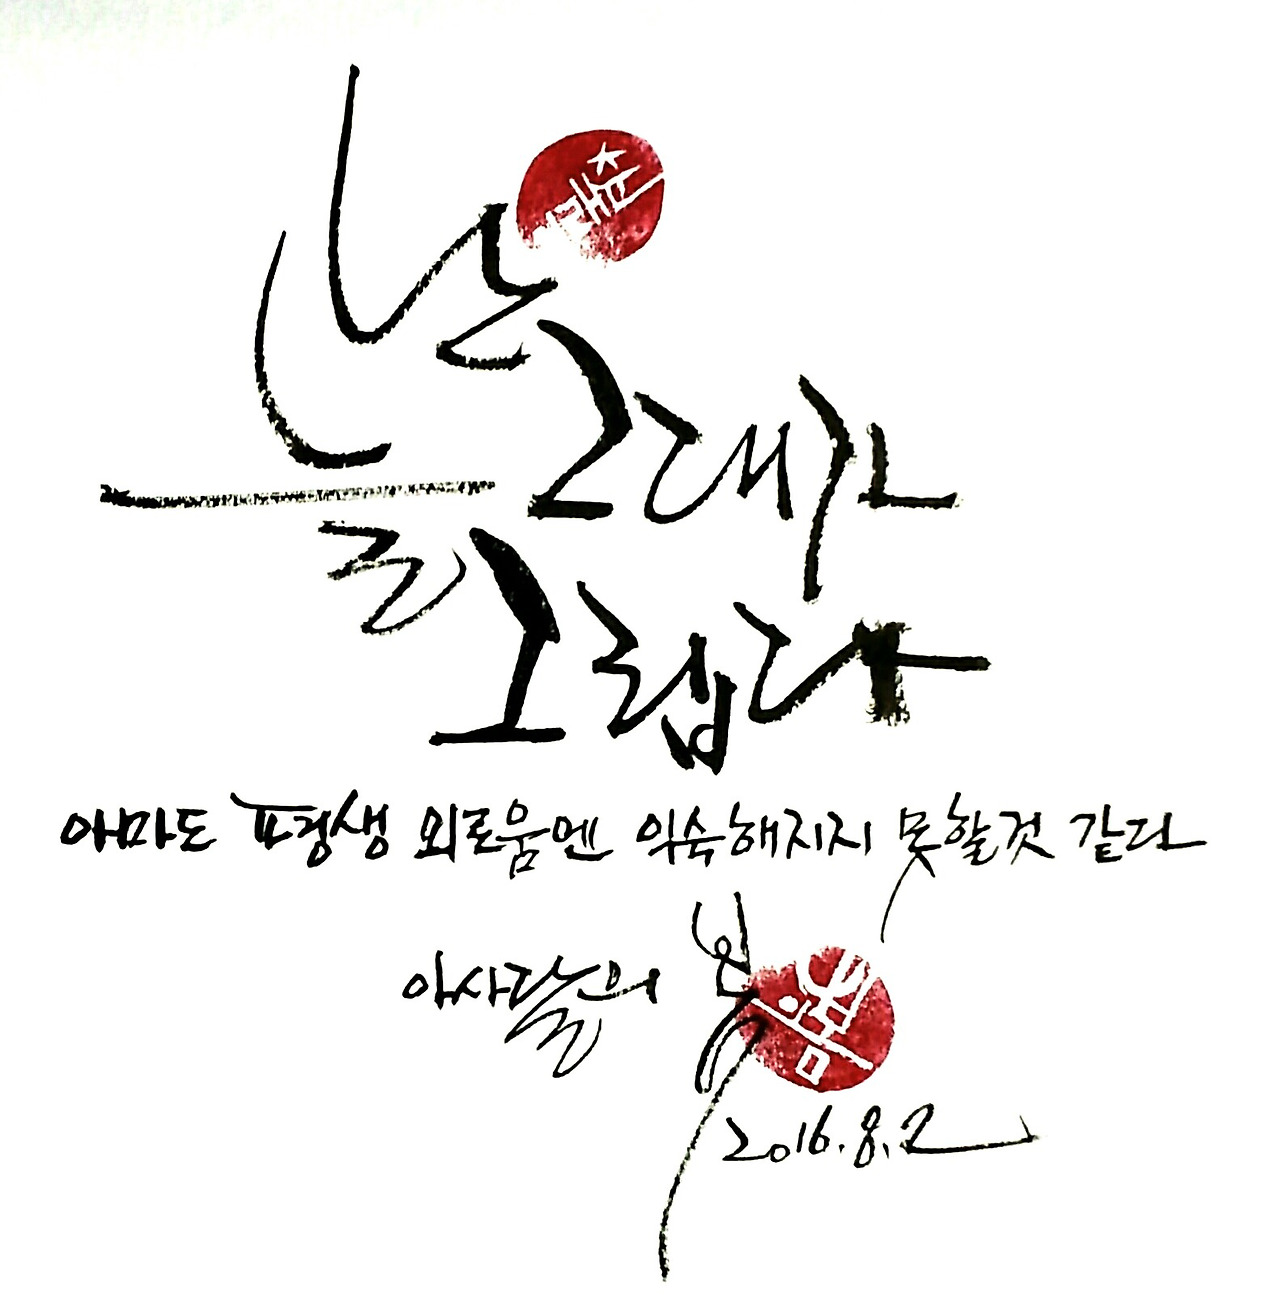 난
늘 그대가
그립다
아마도 평생 외로움엔 익숙해지지 못할것 같다
아사달의
2016.8.2